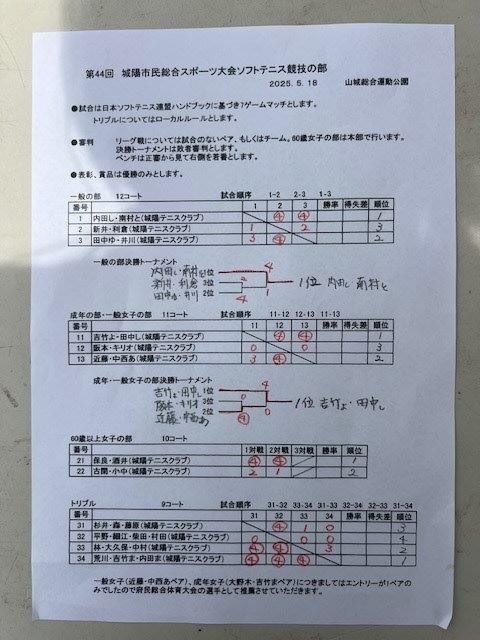 第44回 城陽市民総合スポーツ大会ソフトテニス競技の部
2025.5.18 山城総合運動公園
●試合は日本ソフトテニス連盟ハンドブックに基づき7ゲームマッチとします。
トリプルについてはローカルルールとします。
●審判 リーグ戦については試合のないペア、もしくはチーム。60歳女子の部は本部で行います。
決勝トーナメントは敗者審判とします。
ベンチは正審から見て右側を若番とします。
●表彰、賞品は優勝のみとします。
一般の部 12コート 試合順序 1-2 2-3 1-3
番号 1 2 3 勝率 得失差 順位
1 内田し・南村と(城陽テニスクラブ) ④ ④ 1
2 新井・利倉(城陽テニスクラブ) 1 2 3
3 田中ゆ・井川(城陽テニスクラブ) 3 ④ 2
一般の部決勝トーナメント
内田し・南村と 1位 4
新井・利倉 3位 2 1位 内田し 南村と
田中ゆ・井川 2位 4 1
成年の部・一般女子の部 11コート 試合順序 11-12 12-13 11-13
番号 11 12 13 勝率 得失差 順位
11 吉竹よ・田中し(城陽テニスクラブ) ④ ④ 1
12 阪本・キリオ(城陽テニスクラブ) 0 0 3
13 近藤・中西あ(城陽テニスクラブ) 3 ④ 2
成年・一般女子の部決勝トーナメント
吉竹よ・田中し 1位 4
阪本・キリオ 3位 0 1位 吉竹よ・田中し
近藤・中西あ 2位 ④ 0
60歳以上女子の部 10コート
番号 1対戦 2対戦 3対戦 順位
21 保良・酒井(城陽テニスクラブ) ④ ④ 1
22 古関・小中(城陽テニスクラブ) 2 1 2
トリプル 9コート 試合順序 31-32 33-34 31-33 32-34 32-33 31-34
番号 31 32 33 34 勝率 得失差 順位
31 杉井・森・藤原(城陽テニスクラブ) ④ 1 0 3
32 平野・細江・柴田・村田(城陽テニスクラブ) 0 0 0 4
33 林・大久保・中村(城陽テニスクラブ) ④ ④ 3 2
34 荒川・吉竹ま・内田ま(城陽テニスクラブ) ④ ④ ④ 1
一般女子(近藤・中西あペア)、成年女子(大野木・吉竹まペア)につきましてはエントリーが1ペアの
みでしたので府民総合体育大会の選手として推薦させていただきます。